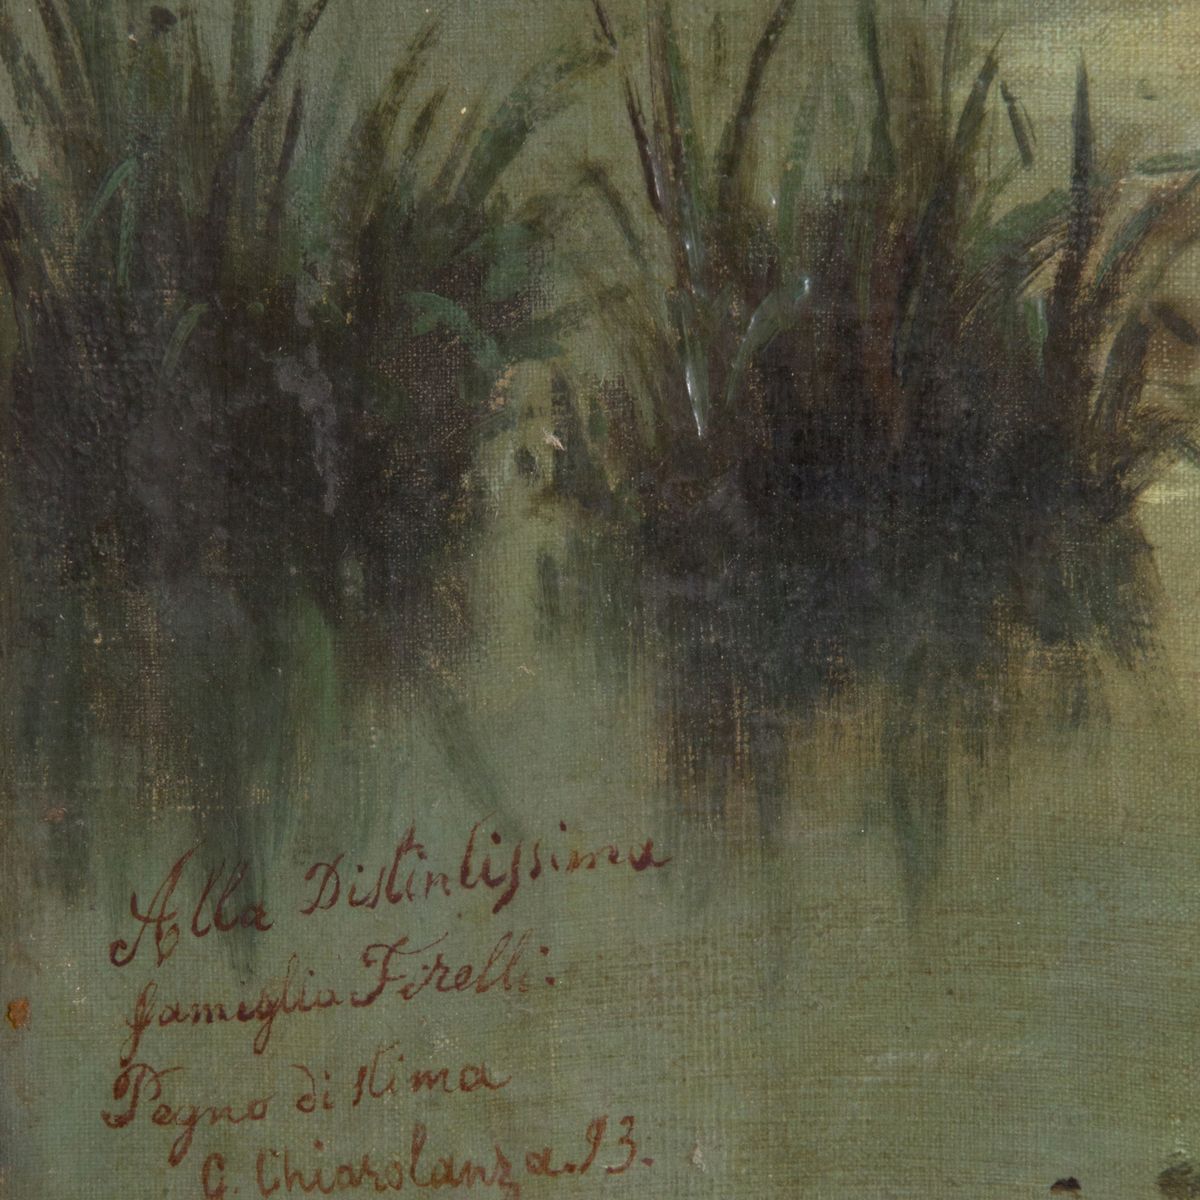 Alla Distintissima
famiglia Firelli.
Pegno di stima
G. Chiarolanza. 93.